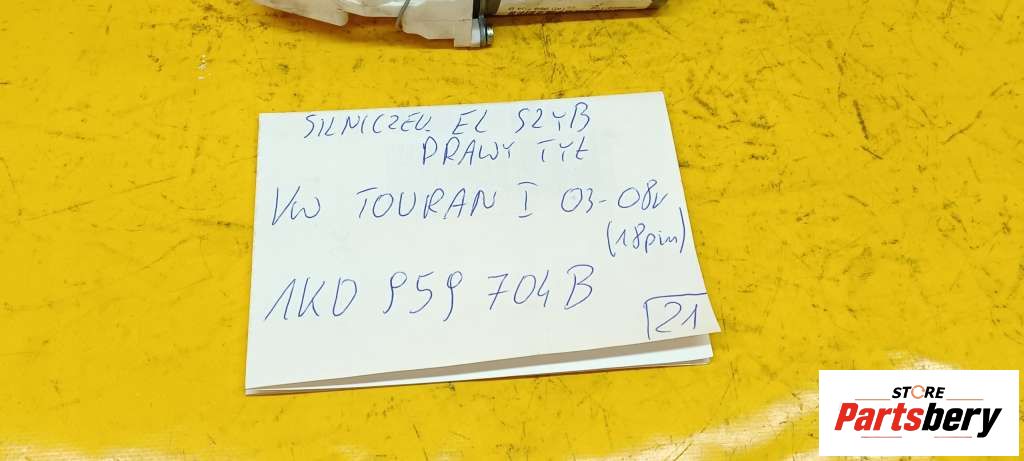 SILNICZEK EL SZYB
PRAWY TYŁ
VW TOURAN I 03-08r
(18pin)
1K0 959 704B
21
STORE
Partsbery